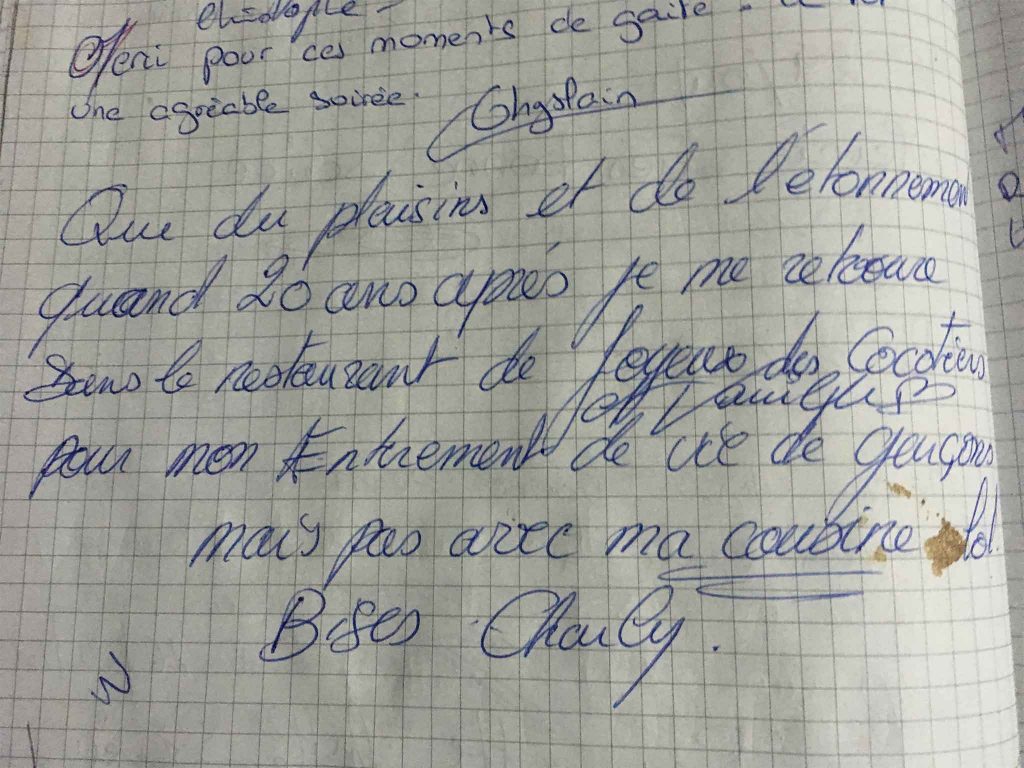 Christophe -
Merci pour ces moments de gaité -
une agréable soirée.
Ghyslain
Que du plaisirs et de l'étonnement
quand 20 ans après je me retouve
Dans le restaurant de Joyeus des Cocotiers
et
pour mon Entrement de vie de garçons
mais pas avec ma cousine lol.
Bises Charly.